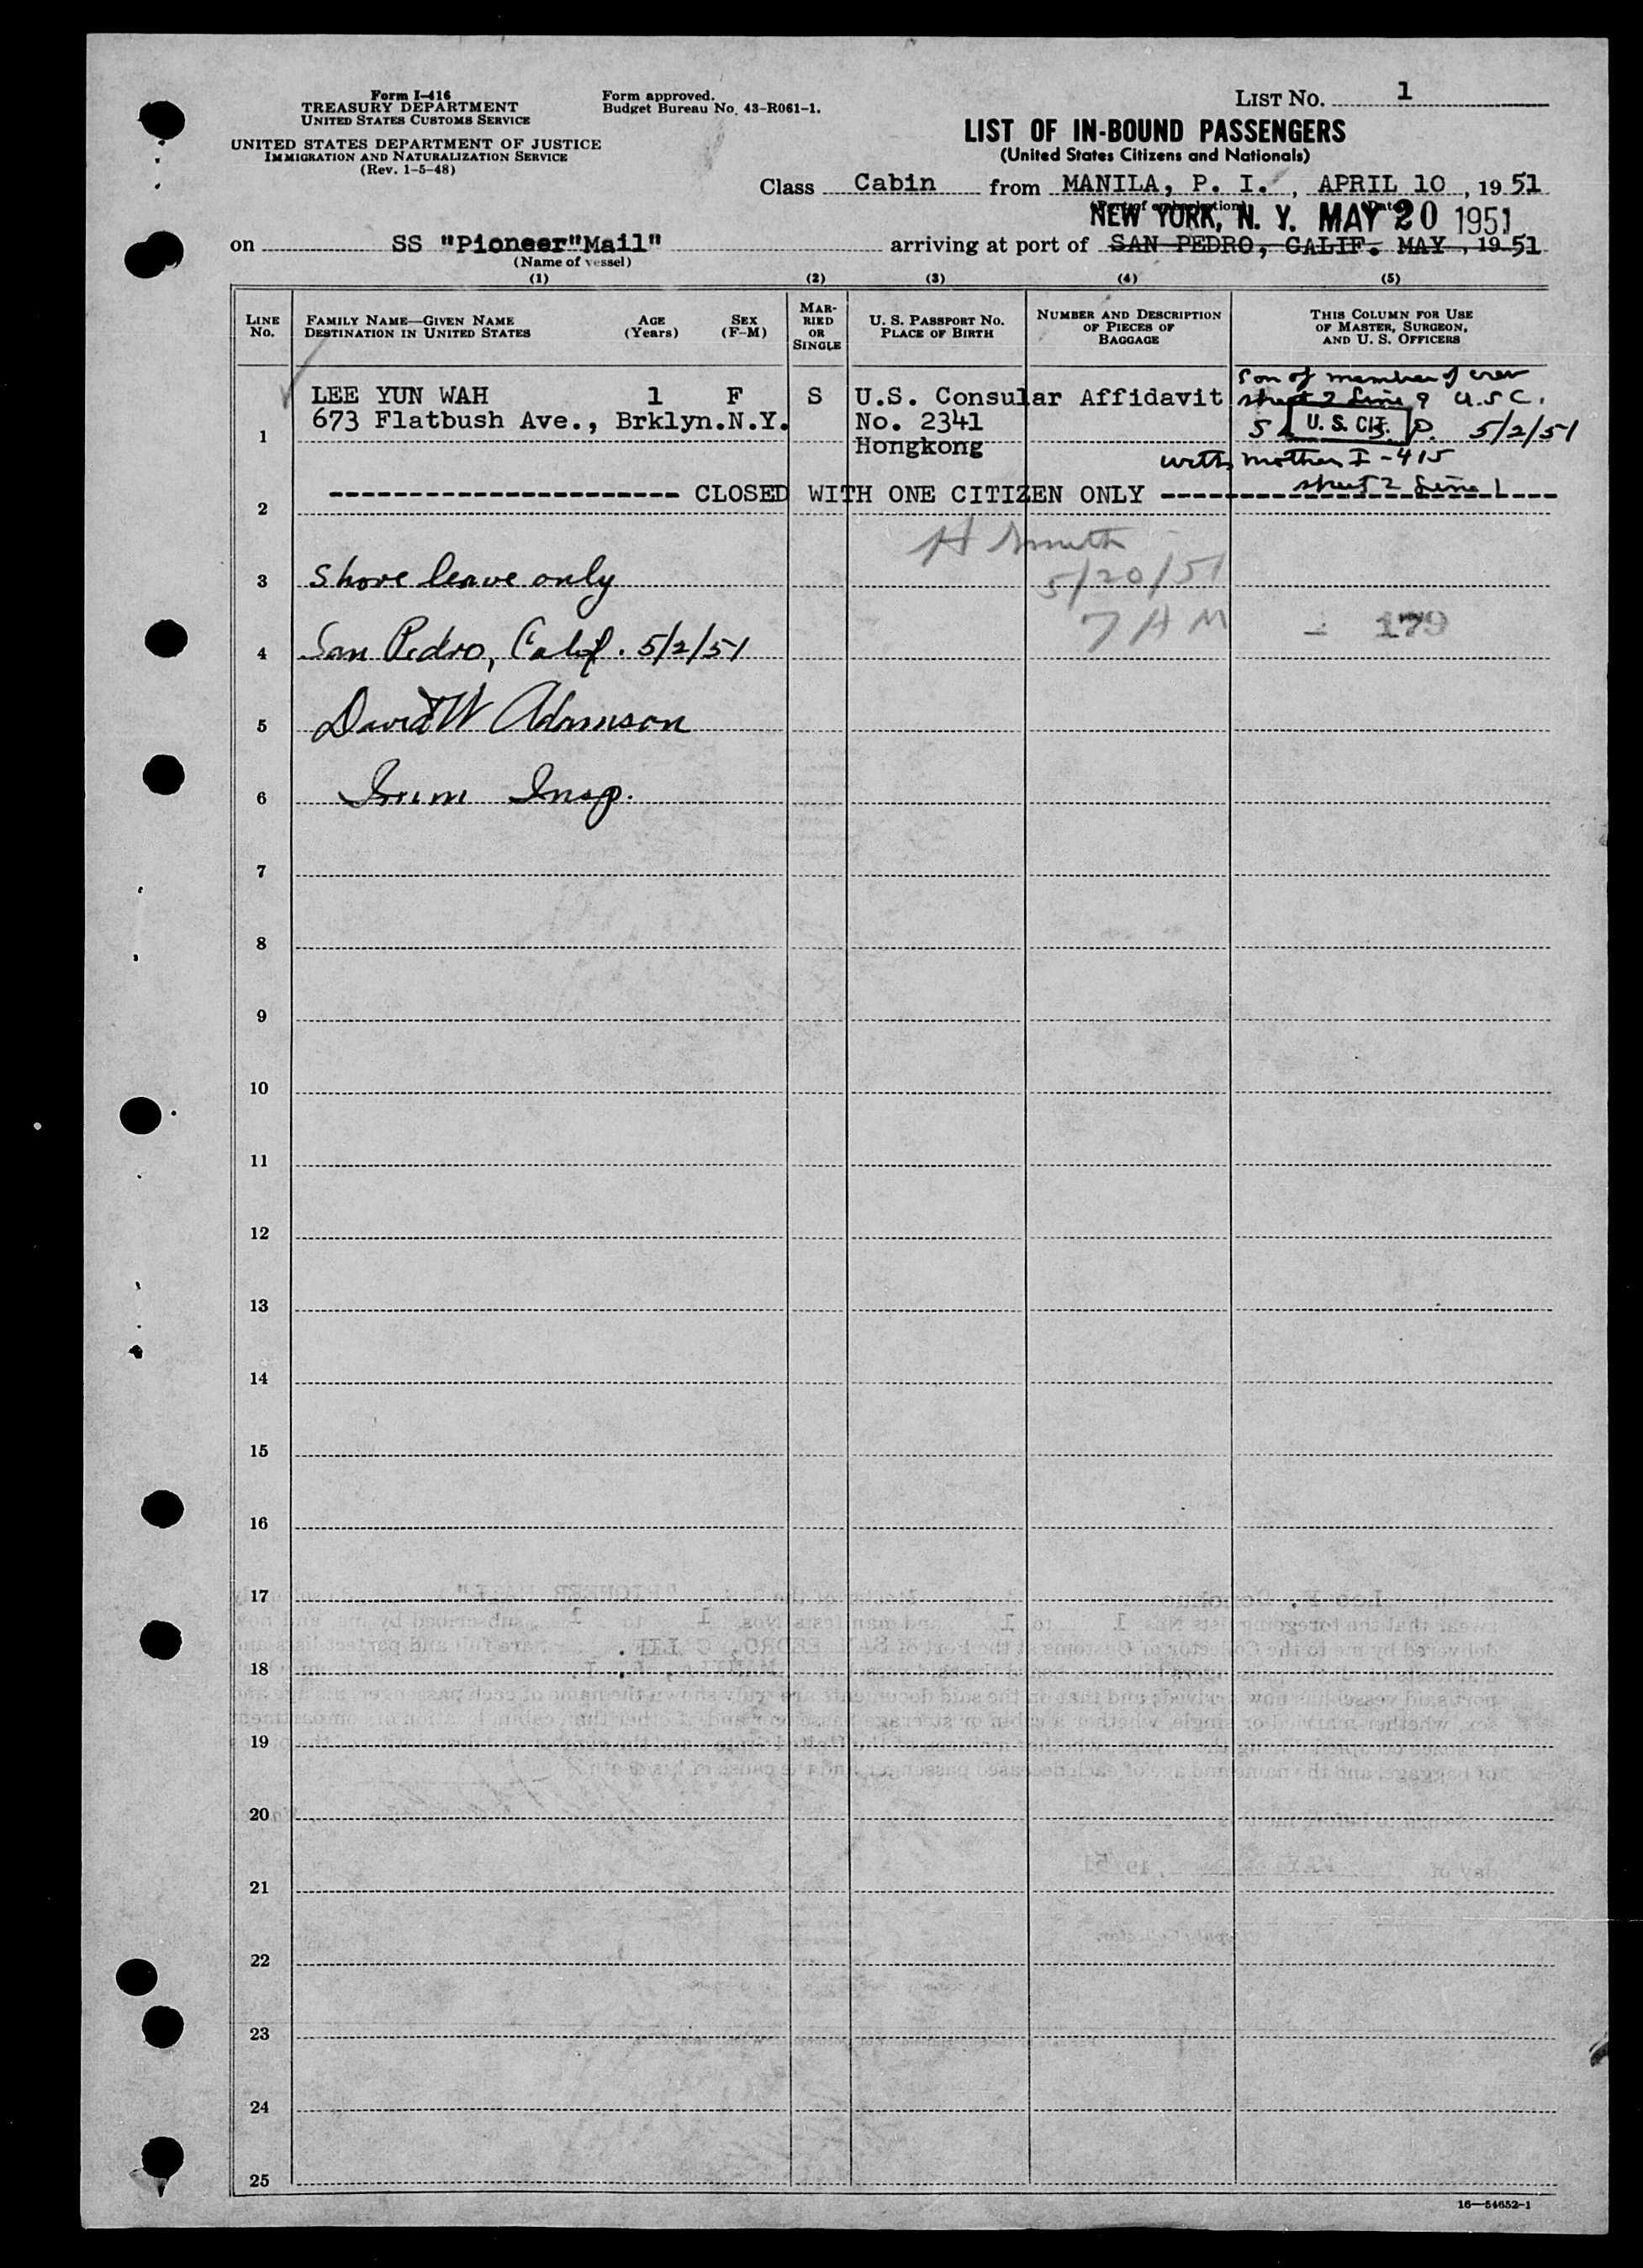 Form I-416
TREASURY DEPARTMENT
UNITED STATES CUSTOMS SERVICE
UNITED STATES DEPARTMENT OF JUSTICE
IMMIGRATION AND NATURALIZATION SERVICE
(Rev. 1-5-48)
Form approved.
Budget Bureau No. 43-R061-1.
LIST NO. 1
LIST OF IN-BOUND PASSENGERS
(United States Citizens and Nationals)
Class Cabin from MANILA, P. I. , APRIL 10 , 19 51
NEW YORK, N. Y. MAY 20 1951
on SS "Pioneer"Mail" arriving at port of SAN PEDRO, CALIF. MAY , 19 51
(Name of vessel)
(1) (2) (3) (4) (5)
LINE No.
FAMILY NAME—GIVEN NAME
DESTINATION IN UNITED STATES
AGE (Years)
SEX (F-M)
MAR-RIED OR SINGLE
U. S. PASSPORT NO.
PLACE OF BIRTH
NUMBER AND DESCRIPTION OF PIECES OF BAGGAGE
THIS COLUMN FOR USE OF MASTER, SURGEON, AND U. S. OFFICERS
LEE YUN WAH 1 F S U.S. Consular Affidavit
673 Flatbush Ave., Brklyn.N.Y. No. 2341
Hongkong
Son of member of crew
sheet 2 line 9 U.S.C.
U. S. CIT. 5/2/51
with mother I-415
sheet 2 line 1
1
CLOSED WITH ONE CITIZEN ONLY
2
H Smith
5/20/51
7 AM
179
3 Shore leave only
4 San Pedro, Calif. 5/2/51
5 David W Adamson
6 Imm Insp.
7
8
9
10
11
12
13
14
15
16
17
18
19
20
21
22
23
24
25
16—54652-1